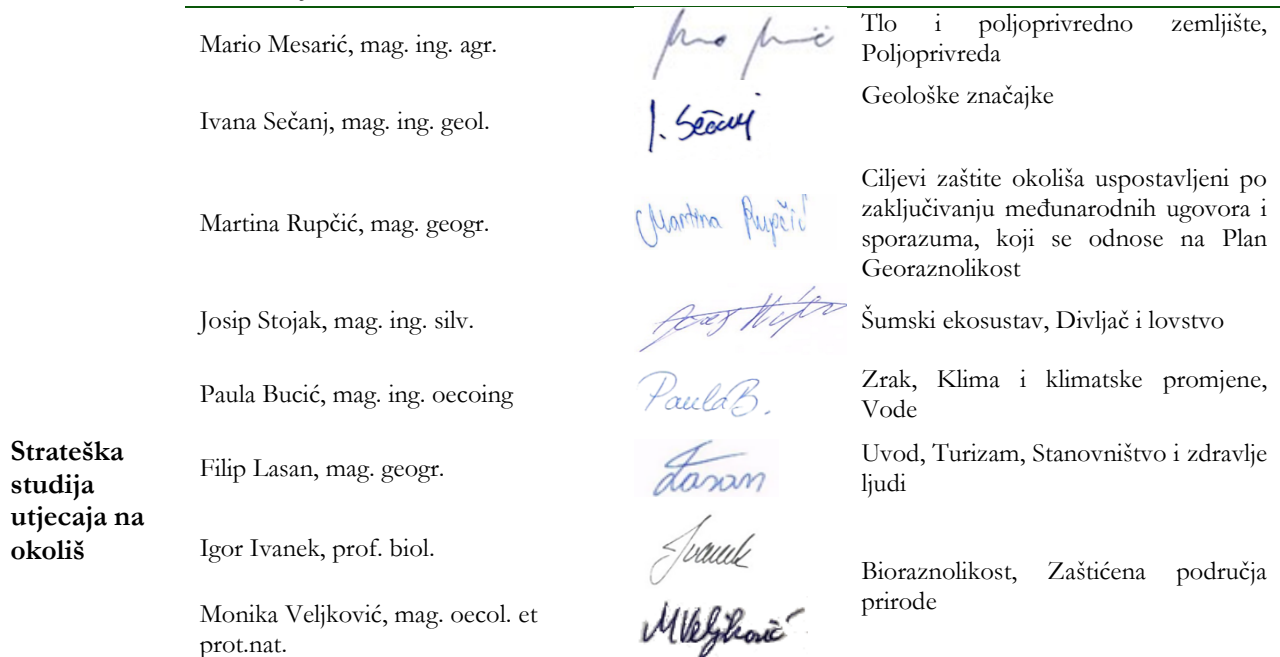 Mario Mesarić, mag. ing. agr.
Tlo i poljoprivredno zemljište,
Poljoprivreda
Ivana Sečanj, mag. ing. geol.
I. Sečanj
Geološke značajke
Martina Rupčić, mag. geogr.
Martina Rupčić
Ciljevi zaštite okoliša uspostavljeni po
zaključivanju međunarodnih ugovora i
sporazuma, koji se odnose na Plan
Georaznolikost
Josip Stojak, mag. ing. silv.
Šumski ekosustav, Divljač i lovstvo
Paula Bucić, mag. ing. oecoing
Paula B.
Zrak, Klima i klimatske promjene,
Vode
Strateška
studija
utjecaja na
okoliš
Filip Lasan, mag. geogr.
Lasan
Uvod, Turizam, Stanovništvo i zdravlje
ljudi
Igor Ivanek, prof. biol.
Ivanek
Bioraznolikost, Zaštićena područja
prirode
Monika Veljković, mag. oecol. et
prot.nat.
MVeljković